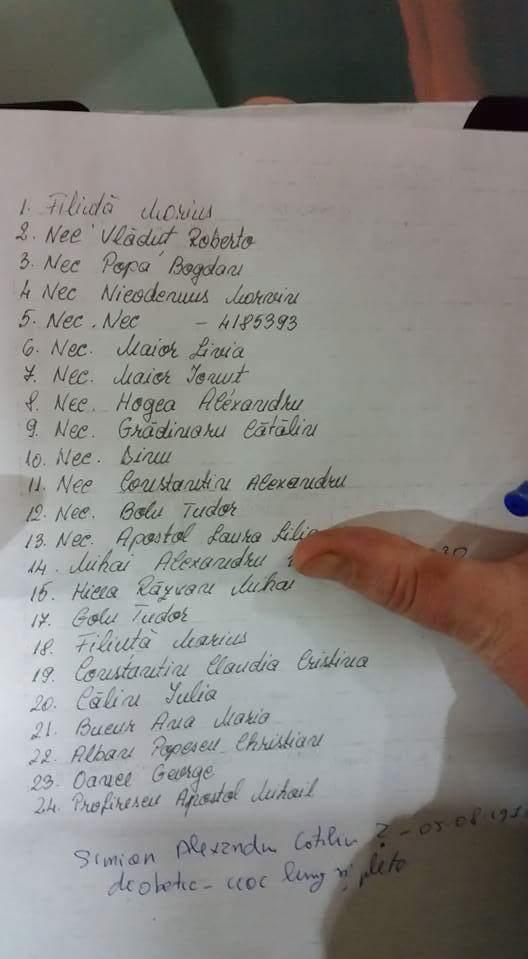 1. Filiuță Marius
2. Nec Vlăduț Roberto
3. Nec Popa Bogdan
4 Nec Nicodemus Marvin
5. Nec. Nec - 4185393
6. Nec. Maior Livia
7. Nec. Maior Ionut
8. Nec. Hogea Alexandru
9. Nec. Grădinaru Cătălin
10. Nec. Dinu
11. Nec Constantin Alexandru
12. Nec. Bolu Tudor
13. Nec. Apostol Laura
14. Mihai Alexandru
15. Răzvan Mihai
17. Golu Tudor
18. Filiuță Marius
19. Constantin Claudia Cristina
20. Călin Iulia
21. Bucur Ana Maria
22. Alban Popescu Christian
23. Oancea George
24. Profirescu Apostol Mihail
Simion Alexandru ? - 05.08.19
diabetic -